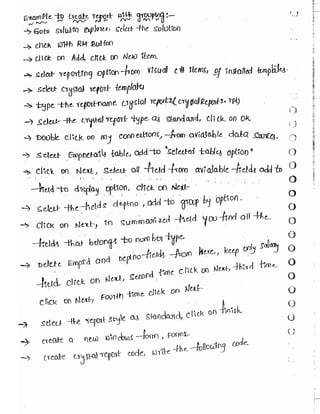 Example to Create report with grouping:-
→ Goto Solution Explorer select the solution
→ click with RM Button
→ click on Add, click on New item.
→ select reporting option from visual c# items, of installed templates.
→ select crystal report template
→ type the report name crystal report2(CrystalReport2.rpt)
→ select the crystal report type as standard, click on ok
→ Double click on my connections, from available data sources.
→ select Empdetails table, add to "selected tables option"
→ click on Next, select all field from available fields add to
field to display option, click on Next
→ select the fields deptno, add to group by option.
→ click on Next, in summarized field you find all the
fields that belongs to number type.
→ Delete Empid and Deptno fields from here, keep only salary
field. click on Next, second time click on Next, third time
click on Next, Fourth time click on Next
→ select the report style as standard, click on finish.
→ create a new windows form, Form2.
→ create crystal report code, write the following code.